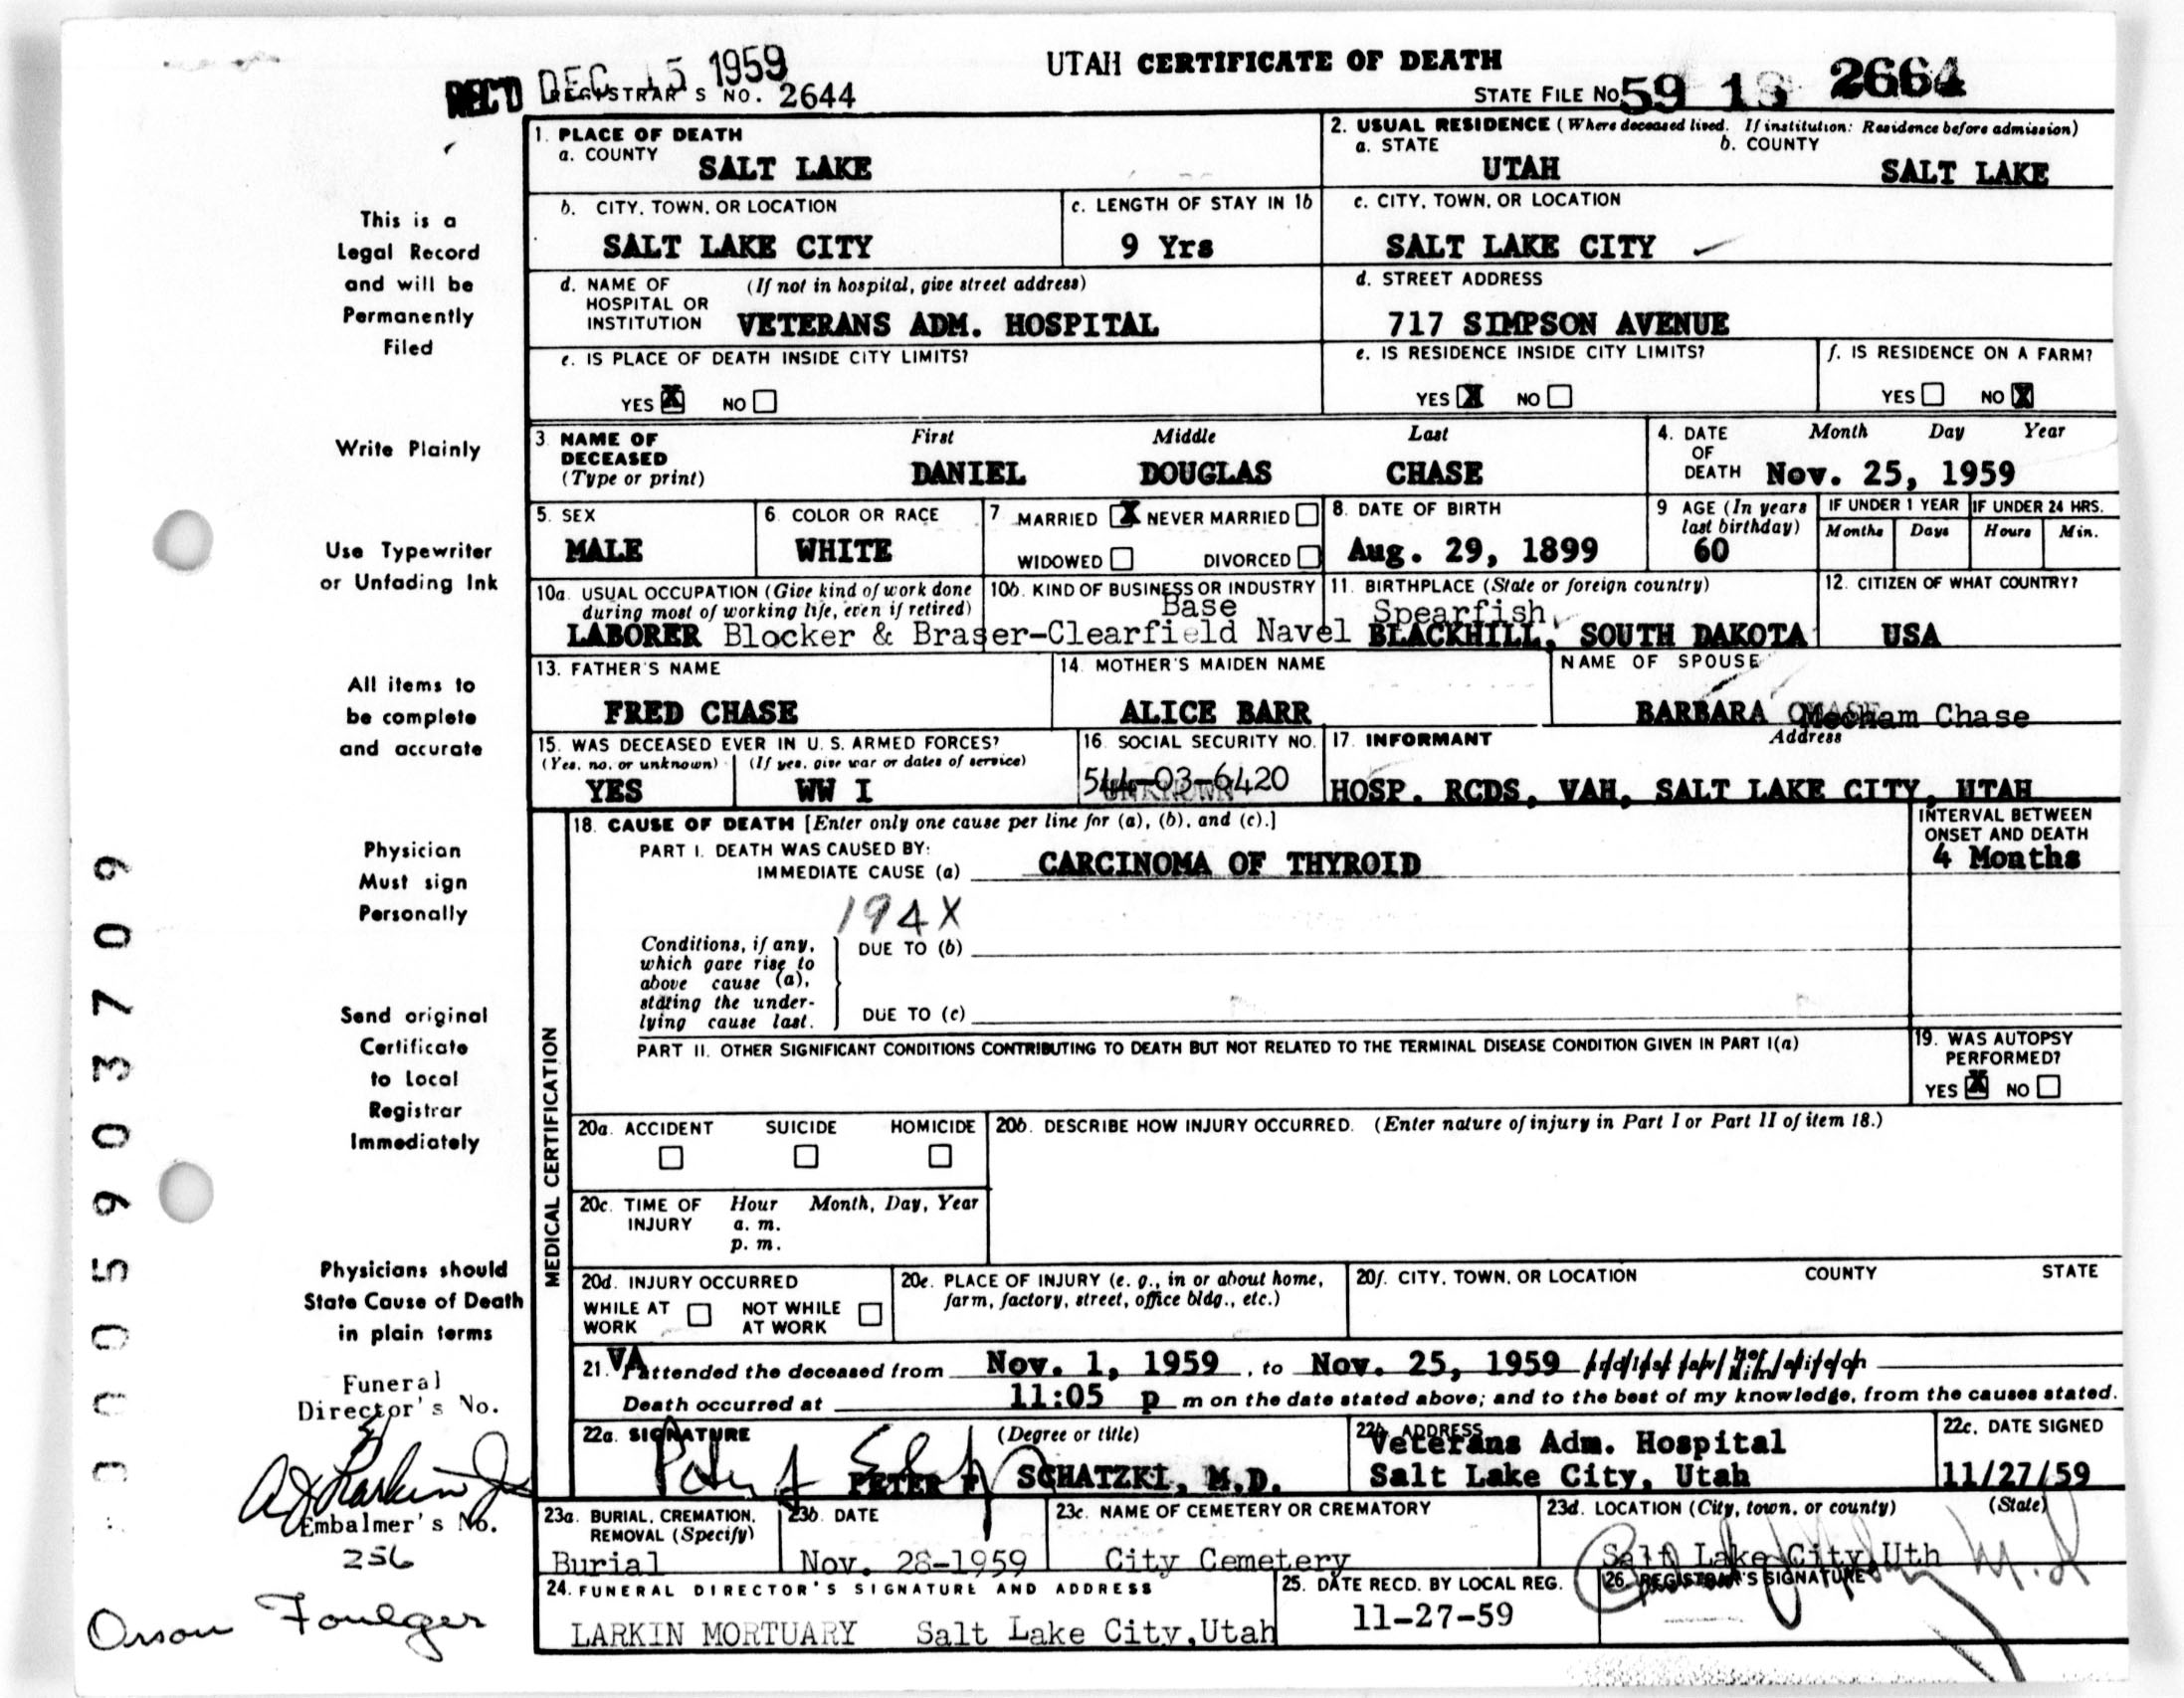 REC'D DEC 15 1959
UTAH CERTIFICATE OF DEATH
REGISTRAR'S NO. 2644
STATE FILE NO. 59 18 2664
1. PLACE OF DEATH
a. COUNTY SALT LAKE
2. USUAL RESIDENCE (Where deceased lived. If institution: Residence before admission)
a. STATE UTAH b. COUNTY SALT LAKE
b. CITY, TOWN, OR LOCATION SALT LAKE CITY
c. LENGTH OF STAY IN 1b 9 Yrs
c. CITY, TOWN, OR LOCATION SALT LAKE CITY
d. NAME OF HOSPITAL OR INSTITUTION (If not in hospital, give street address) VETERANS ADM. HOSPITAL
d. STREET ADDRESS 717 SIMPSON AVENUE
e. IS PLACE OF DEATH INSIDE CITY LIMITS?
YES X NO
e. IS RESIDENCE INSIDE CITY LIMITS?
YES X NO
f. IS RESIDENCE ON A FARM?
YES NO X
3. NAME OF DECEASED (Type or print)
First Middle Last
DANIEL DOUGLAS CHASE
4. DATE OF DEATH Month Day Year
Nov. 25, 1959
5. SEX MALE
6. COLOR OR RACE WHITE
7 MARRIED X NEVER MARRIED
WIDOWED DIVORCED
8. DATE OF BIRTH Aug. 29, 1899
9 AGE (In years last birthday) 60
IF UNDER 1 YEAR Months Days
IF UNDER 24 HRS. Hours Min.
10a. USUAL OCCUPATION (Give kind of work done during most of working life, even if retired)
10b. KIND OF BUSINESS OR INDUSTRY
LABORER Blocker & Braser-Clearfield Navel Base
11. BIRTHPLACE (State or foreign country)
Spearfish,
BLACKHILL, SOUTH DAKOTA
12. CITIZEN OF WHAT COUNTRY?
USA
13. FATHER'S NAME
FRED CHASE
14. MOTHER'S MAIDEN NAME
ALICE BARR
NAME OF SPOUSE
BARBARA CHASE Mecham Chase
15. WAS DECEASED EVER IN U.S. ARMED FORCES?
(Yes, no, or unknown) (If yes, give war or dates of service)
YES WW I
16. SOCIAL SECURITY NO.
UNKNOWN 544-03-6420
17. INFORMANT Address
HOSP. RCDS, VAH, SALT LAKE CITY, UTAH
MEDICAL CERTIFICATION
18. CAUSE OF DEATH [Enter only one cause per line for (a), (b), and (c).]
INTERVAL BETWEEN ONSET AND DEATH
PART I. DEATH WAS CAUSED BY:
IMMEDIATE CAUSE (a) CARCINOMA OF THYROID
4 Months
194X
Conditions, if any, which gave rise to above cause (a), stating the underlying cause last.
DUE TO (b)
DUE TO (c)
PART II. OTHER SIGNIFICANT CONDITIONS CONTRIBUTING TO DEATH BUT NOT RELATED TO THE TERMINAL DISEASE CONDITION GIVEN IN PART I(a)
19. WAS AUTOPSY PERFORMED?
YES X NO
20a. ACCIDENT SUICIDE HOMICIDE
20b. DESCRIBE HOW INJURY OCCURRED. (Enter nature of injury in Part I or Part II of item 18.)
20c. TIME OF INJURY Hour Month, Day, Year
a. m.
p. m.
20d. INJURY OCCURRED
WHILE AT WORK NOT WHILE AT WORK
20e. PLACE OF INJURY (e. g., in or about home, farm, factory, street, office bldg., etc.)
20f. CITY, TOWN, OR LOCATION COUNTY STATE
21. VA attended the deceased from Nov. 1, 1959, to Nov. 25, 1959
Death occurred at 11:05 p m on the date stated above; and to the best of my knowledge, from the causes stated.
22a. SIGNATURE (Degree or title)
PETER F SCHATZKI, M.D.
22b. ADDRESS
Veterans Adm. Hospital
Salt Lake City, Utah
22c. DATE SIGNED
11/27/59
23a. BURIAL, CREMATION, REMOVAL (Specify)
Burial
23b. DATE
Nov. 28-1959
23c. NAME OF CEMETERY OR CREMATORY
City Cemetery
23d. LOCATION (City, town, or county) (State)
Salt Lake City, Uth
24. FUNERAL DIRECTOR'S SIGNATURE AND ADDRESS
LARKIN MORTUARY Salt Lake City, Utah
25. DATE RECD. BY LOCAL REG.
11-27-59
26. REGISTRAR'S SIGNATURE
This is a
Legal Record
and will be
Permanently
Filed
Write Plainly
Use Typewriter
or Unfading Ink
All items to
be complete
and accurate
Physician
Must sign
Personally
Send original
Certificate
to Local
Registrar
Immediately
Physicians should
State Cause of Death
in plain terms
Funeral
Director's No.
Larkin Jr
Embalmer's No.
256
Orson Foulger